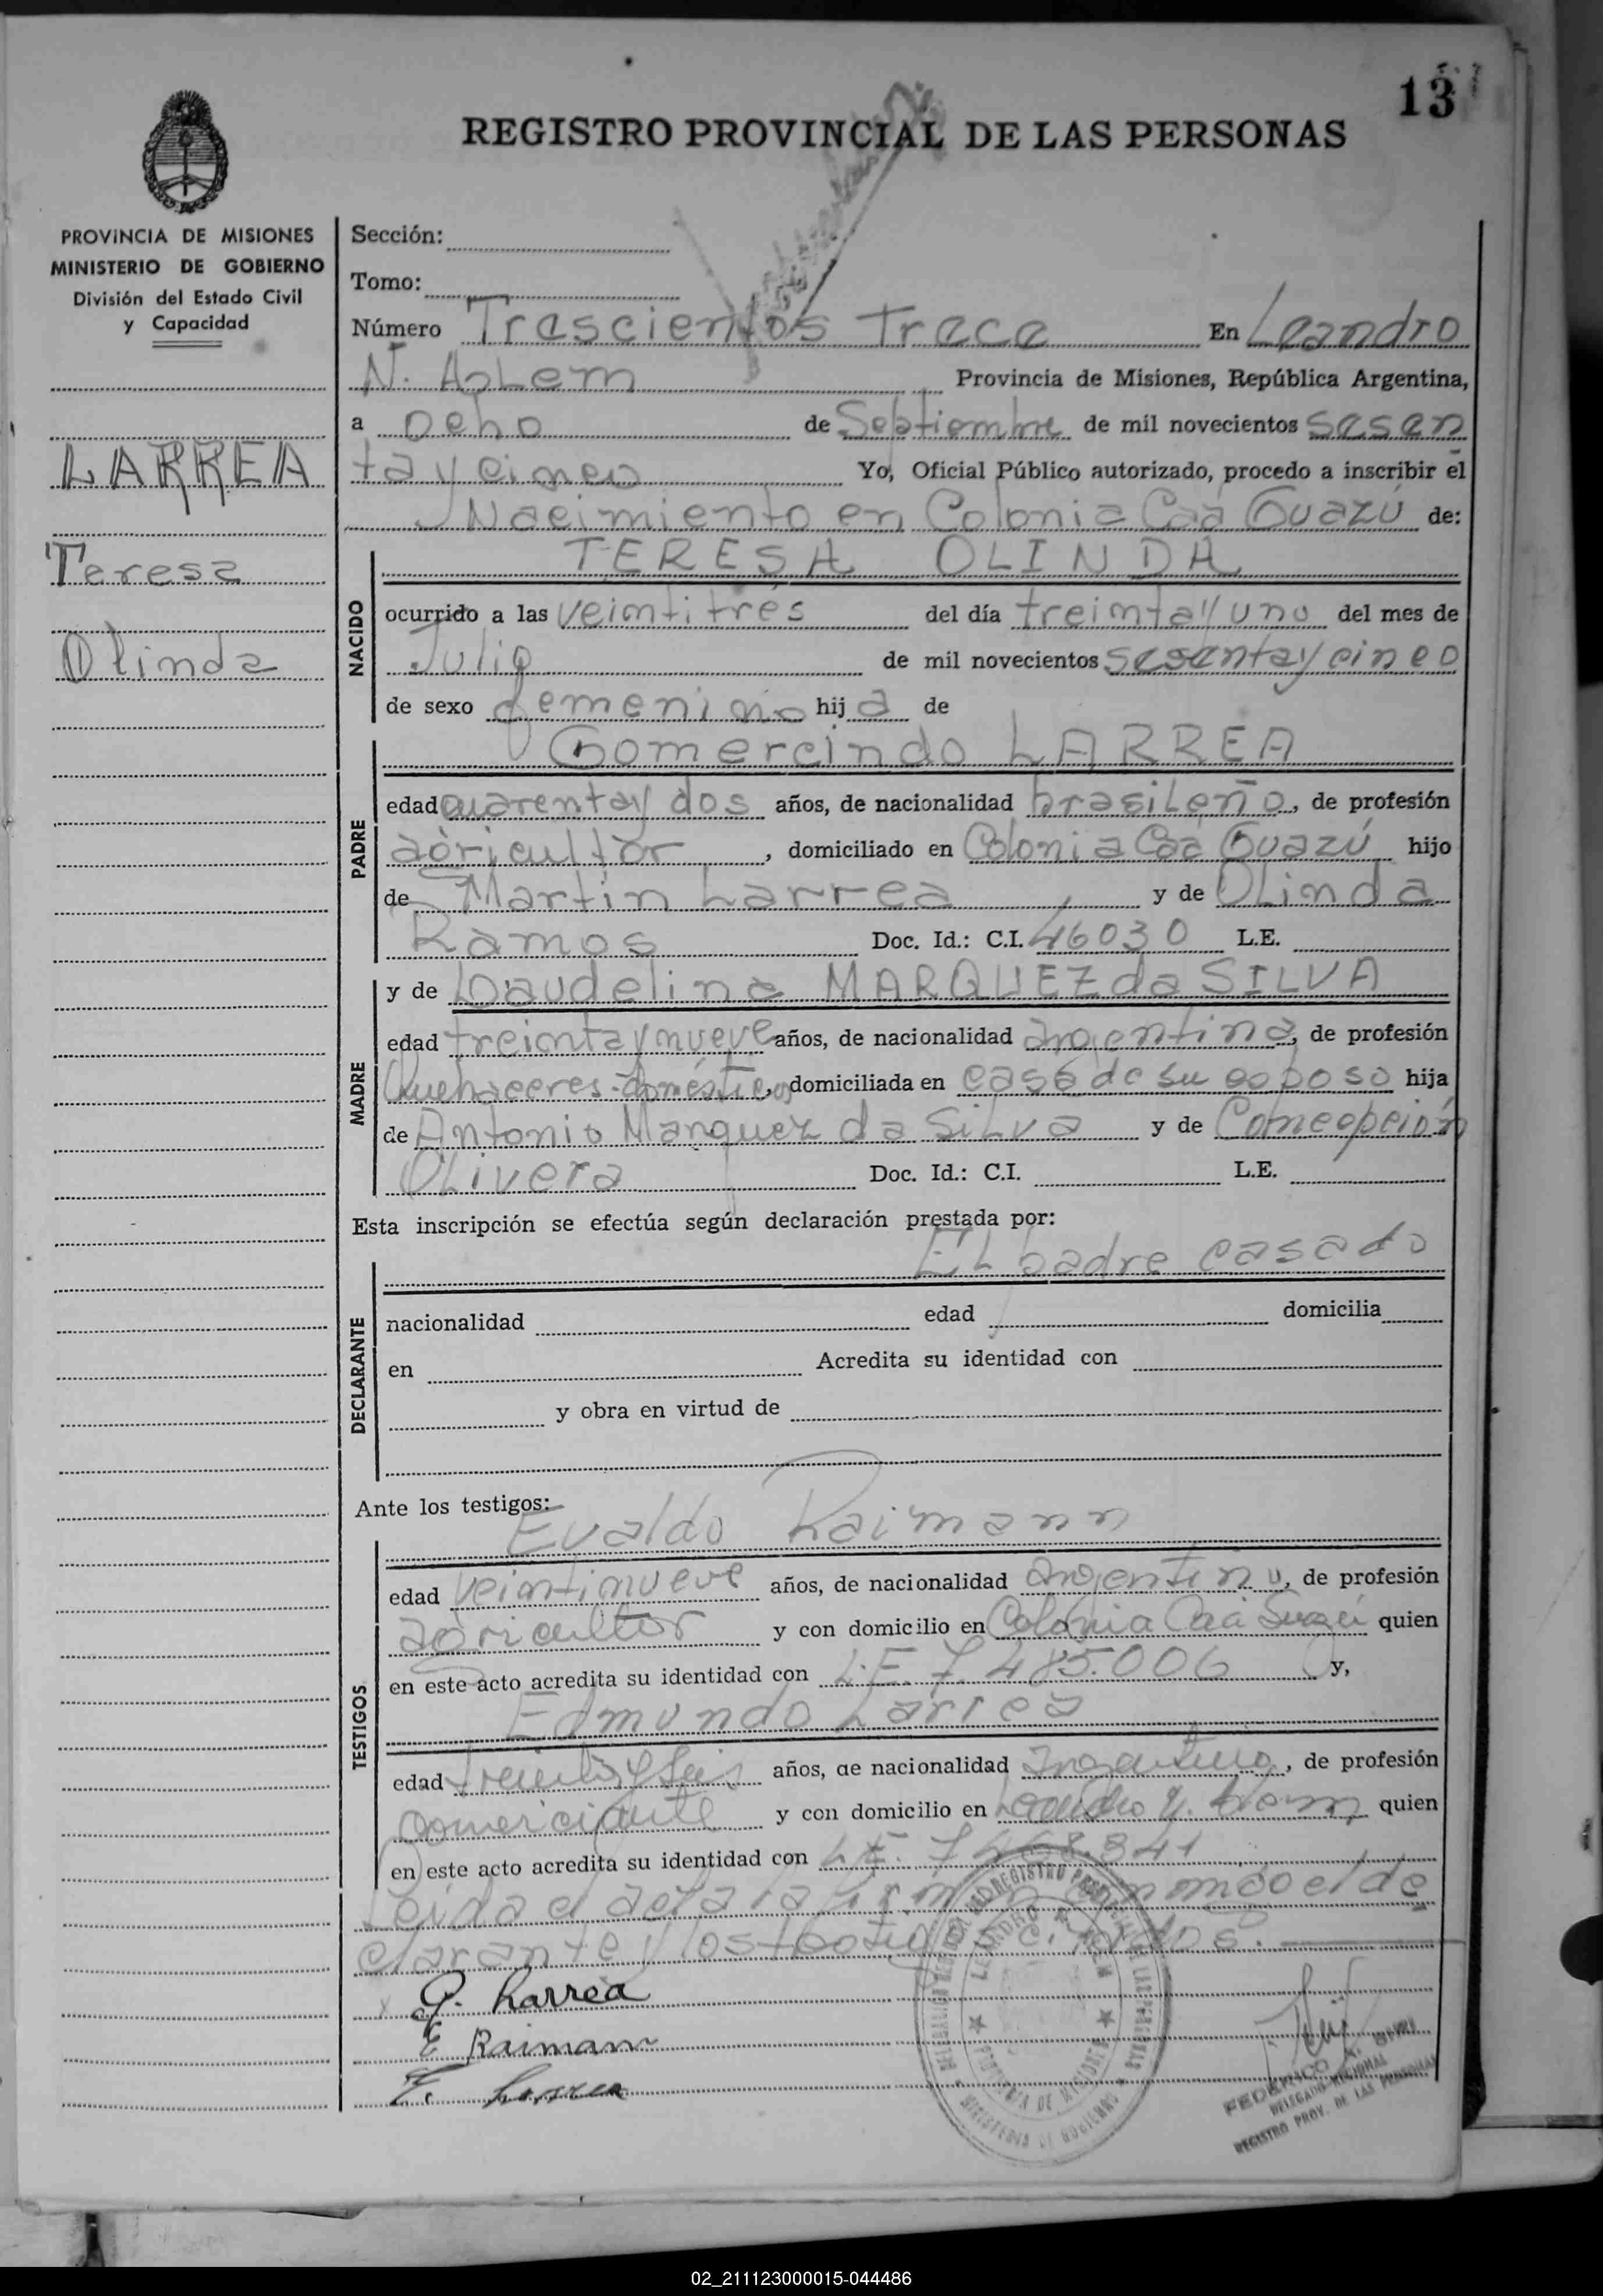 13
REGISTRO PROVINCIAL DE LAS PERSONAS
PROVINCIA DE MISIONES
MINISTERIO DE GOBIERNO
División del Estado Civil
y Capacidad
LARREA
Teresa
Olinda
Sección:
Tomo:
Número Trescientos trece En Leandro
N. ALem Provincia de Misiones, República Argentina,
a ocho de Septiembre de mil novecientos sesen
ta y cinco Yo, Oficial Público autorizado, procedo a inscribir el
Nacimiento en Colonia Caá Guazú de:
NACIDO
TERESA OLINDA
ocurrido a las veintitrés del día treinta y uno del mes de
Julio de mil novecientos sesenta y cinco
de sexo femenino hija de
PADRE
Gomercindo LARREA
edad cuarenta y dos años, de nacionalidad brasileño, de profesión
agricultor, domiciliado en Colonia Caá Guazú hijo
de Martín Larrea y de OLinda
Ramos Doc. Id.: C.I. 46030 L.E.
MADRE
y de Laudelina MARQUEZ da SILVA
edad treinta y nueve años, de nacionalidad argentina, de profesión
Quehaceres domésticos, domiciliada en casa de su esposo hija
de Antonio Marquez da SiLva y de Concepción
OLivera Doc. Id.: C.I. L.E.
Esta inscripción se efectúa según declaración prestada por:
DECLARANTE
EL padre casado
nacionalidad edad domicilia
en Acredita su identidad con
y obra en virtud de
Ante los testigos:
TESTIGOS
Evaldo Raimann
edad veintinueve años, de nacionalidad argentino, de profesión
agricultor y con domicilio en Colonia Caá Guazú quien
en este acto acredita su identidad con L.E. 7.485.006 y,
Edmundo Larrea
edad treinta y seis años, de nacionalidad argentino, de profesión
comerciante y con domicilio en Leandro N. Alem quien
en este acto acredita su identidad con L.E. 7.468.341
Leida el acta la firman conmigo el de
clarante y los testigos citados.
G. Larrea
E Raimann
E. Larrea
LEANDRO N. ALEM
PROVINCIA DE MISIONES
MINISTERIO DE GOBIERNO
FEDERICO A.
DELEGADO REGIONAL
REGISTRO PROV. DE LAS PERSONAS
02_211123000015-044486